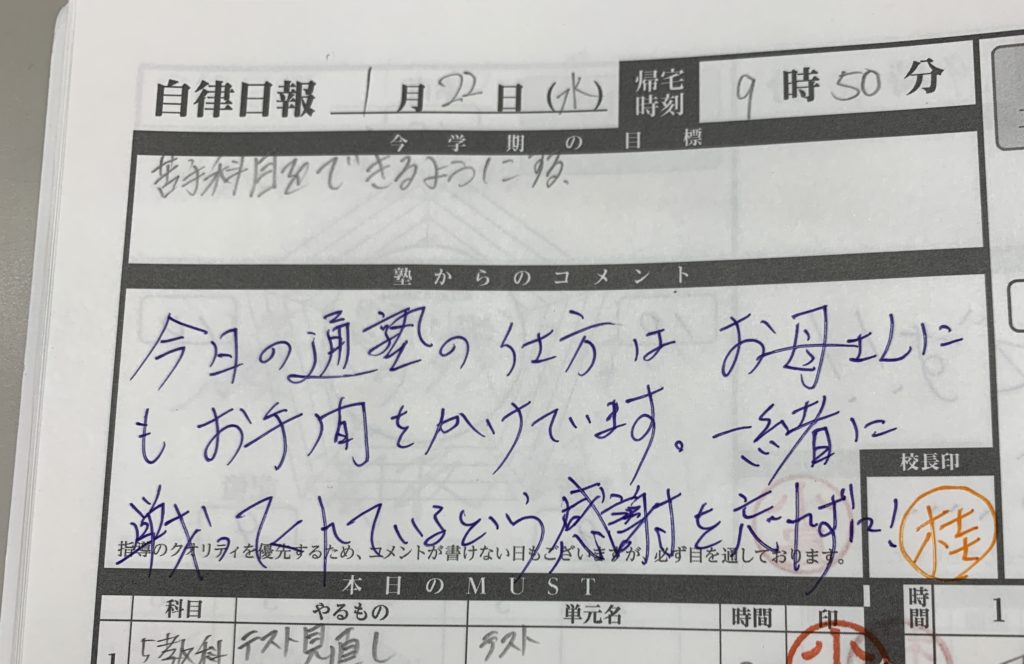 自律日報 1月22日(水) 帰宅時刻 9時50分
今学期の目標
苦手科目をできるようにする。
塾からのコメント
今日の通塾の仕方はお母さんに
もお手間をかけています。一緒に
戦ってくれているという感謝を忘れずに!
指導のクオリティを優先するため、コメントが書けない日もございますが、必ず目を通しております。
校長印
桂
本日のMUST
科目 やるもの 単元名 時間 印
1 5教科 テスト見直し テスト
時間 1